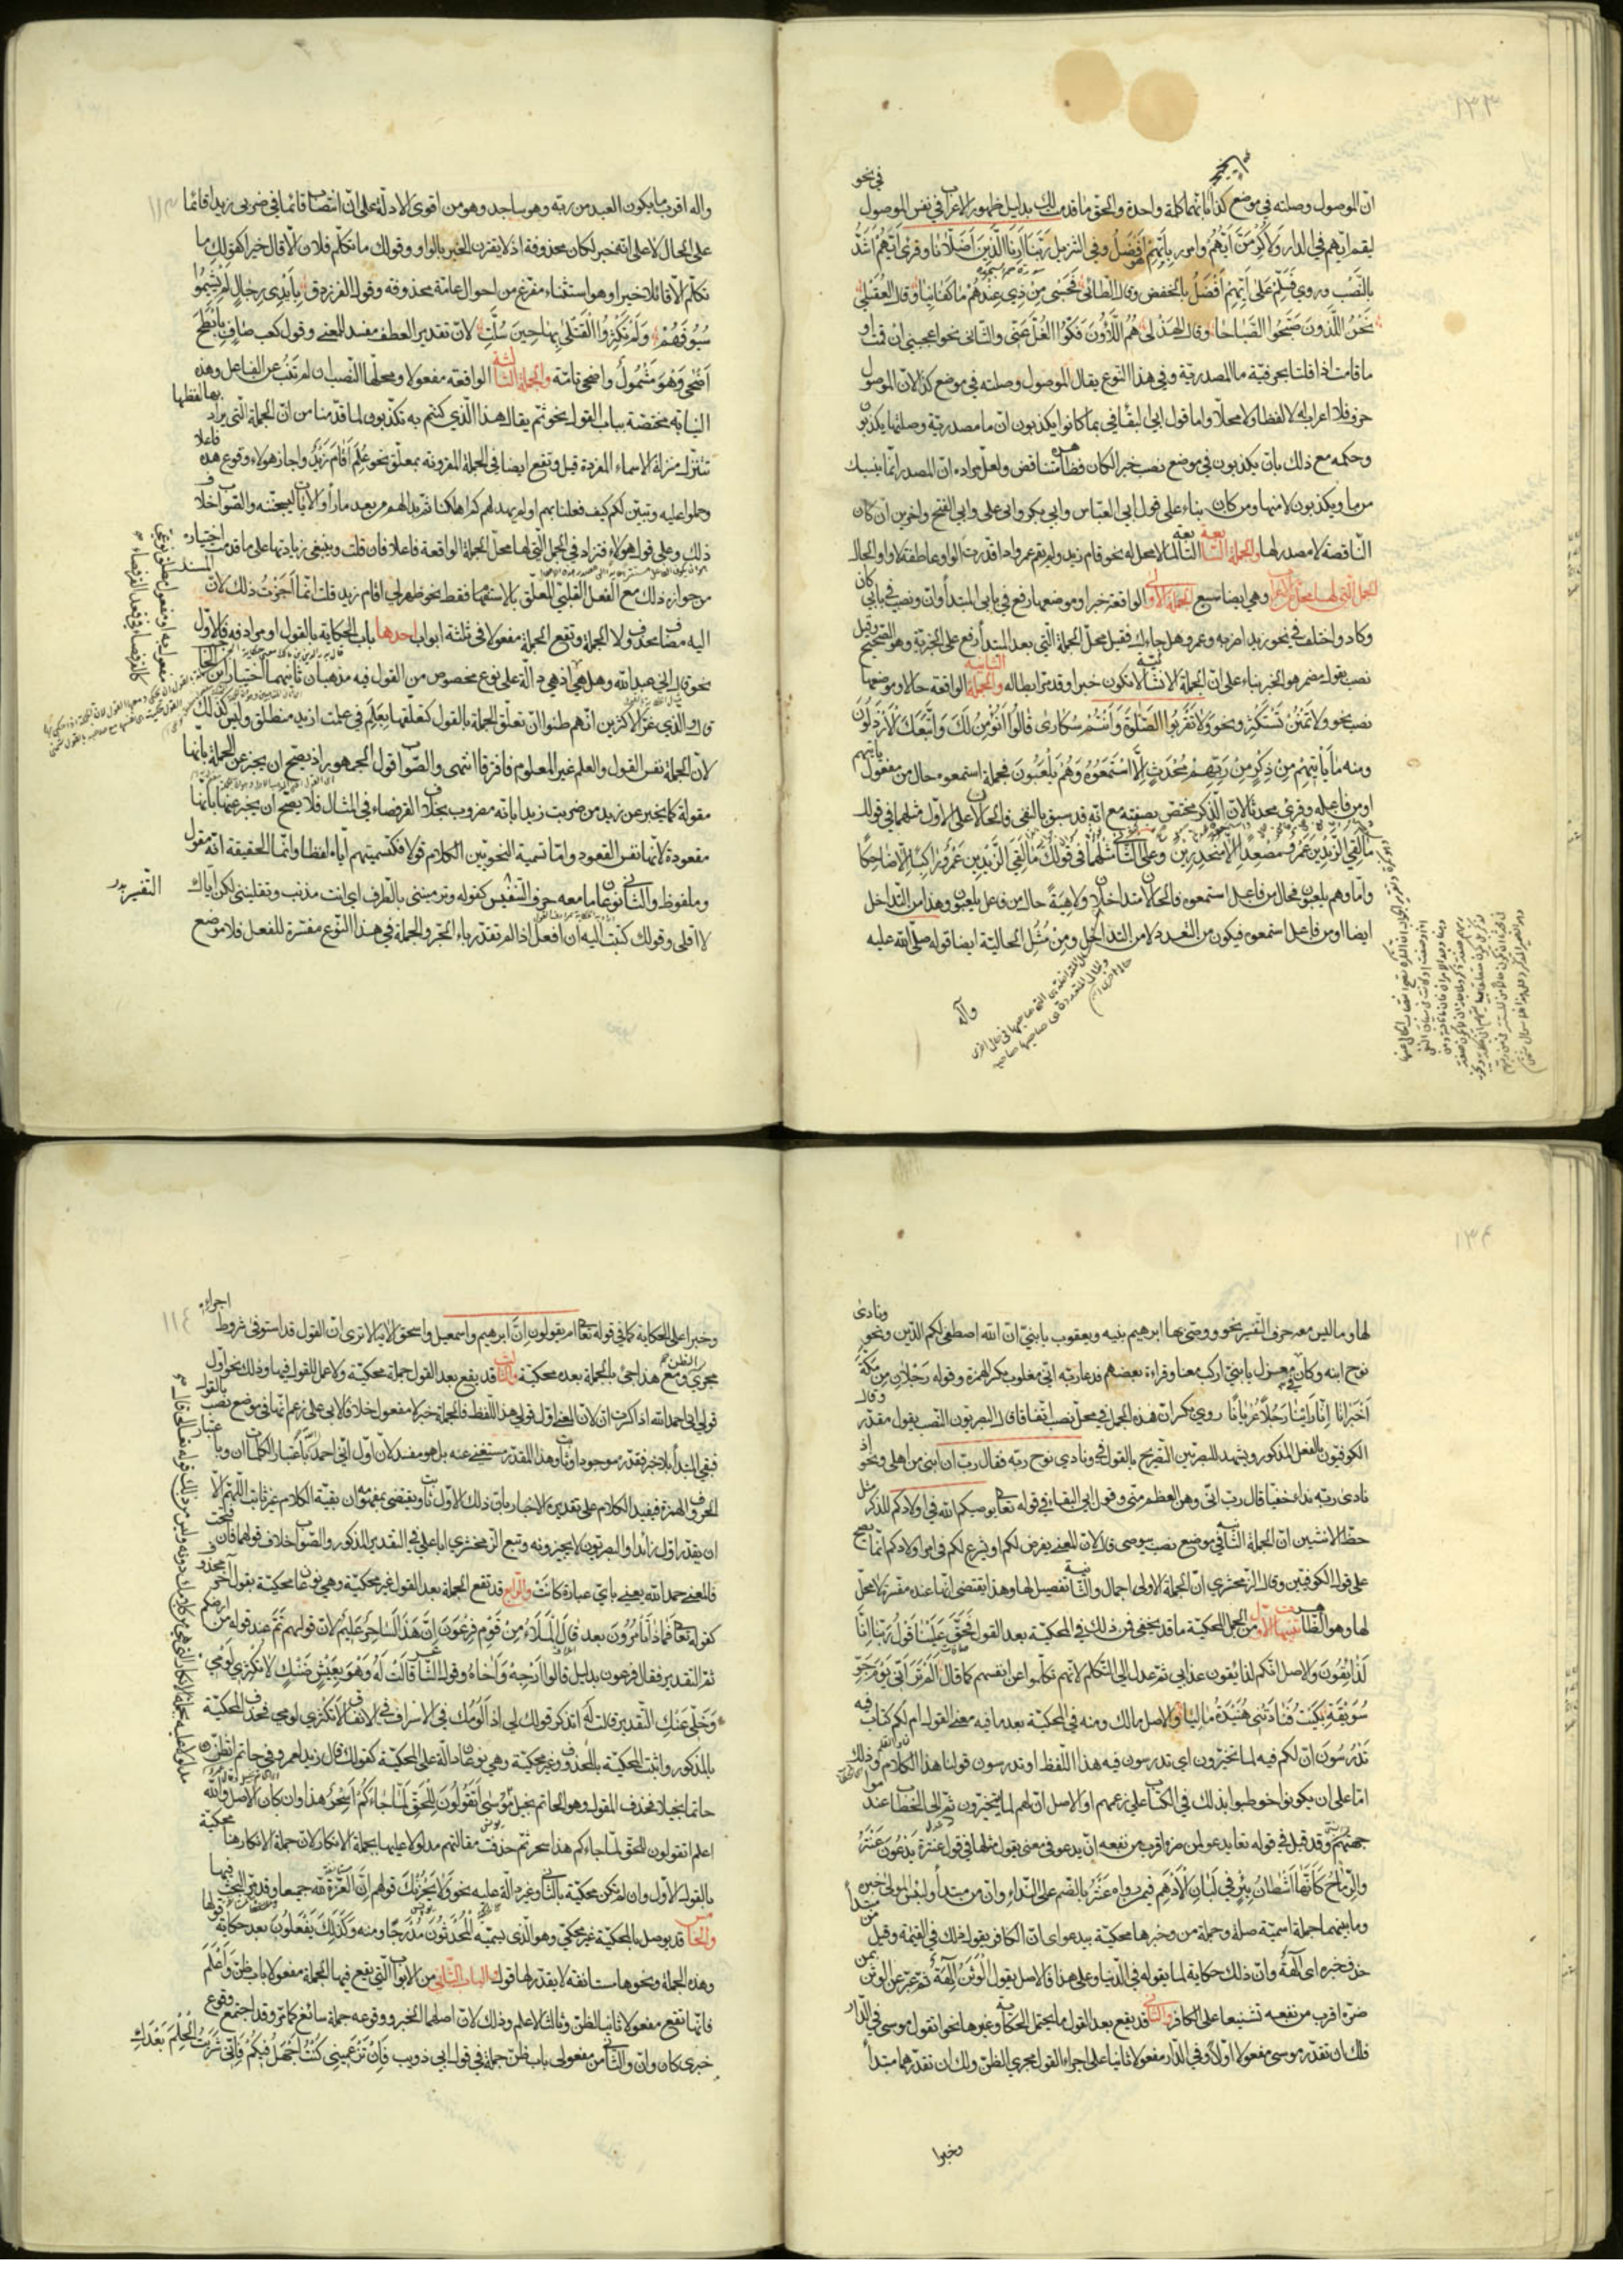 ان الموصول وصلته في موضع كذا لانهما كلمة واحدة والحق ما قدمت لك بدليل ظهور الاعراب في نفس الموصول في نحو
ليقم ايهم في الدار ولاكرمن ايهم وامرر بايهم هو افضل وفي التنزيل ربنا ارنا اللذين اضلانا وقرئ ايهم اشد
بالنصب وروي فسلم على ايهم افضل بالخفض وقال الطائي فحسبي من ذي عندهم ما كفانيا وقال العقيلي
نحن اللذون صبحوا الصباحا وقال الهذلي هم اللاؤون فكوا الغل عني والثاني نحو اعجبني ان قمت او
ما قمت اذا قلنا بحرفية ما المصدرية وفي هذا النوع يقال الموصول وصلته في موضع كذا لان الموصول
حرف فلا اعراب له لا لفظا ولا محلا واما قول ابي البقاء في بما كانوا يكذبون ان ما مصدرية وصلتها يكذبون
وحكمه مع ذلك بان يكذبون في موضع نصب خبرا لكان فظاهره متناقض ولعل مراده ان المصدر انما ينسبك
من ما ويكذبون لا منها ومن كان بناء على قول ابي العباس وابي بكر وابي علي وابي الفتح واخرين ان كان
الناقصة لا مصدر لها والجملة السابعة التابعة لما لا محل له نحو قام زيد ولم يقم عمرو اذا قدرت الواو عاطفة لا واو الحال
الجمل التي لها محل من الاعراب وهي ايضا سبع الجملة الاولى الواقعة خبرا وموضعها رفع في بابي المبتدأ وان ونصب في بابي كان
وكاد واختلف في نحو زيد اضربه وعمرو هل جاءك فقيل محل الجملة التي بعد المبتدأ رفع على الخبرية وهو الصحيح وقيل
نصب بقول مضمر هو الخبر بناء على ان الجملة الانشائية لا تكون خبرا وقد مر ابطاله والجملة الثانية الواقعة حالا وموضعها
نصب نحو ولا تمنن تستكثر ونحو ولا تقربوا الصلوة وانتم سكارى قالوا انؤمن لك واتبعك الارذلون
ومنه ما يأتيهم من ذكر من ربهم محدث الا استمعوه وهم يلعبون فجملة استمعوه حال من مفعول يأتيهم
او من فاعله وقرئ محدثا لان الذكر مختص بصفته مع انه قد سبق بالنفي فالحالان على الاول مثلهما في قولك
ما لقي الزيدين عمرو مصعدا الا منحدرين وعلى الثاني مثلهما في قولك ما لقي الزيدين عمرو راكبا الا ضاحكا
واما وهم يلعبون فحال من فاعل استمعوه فالحالان متداخلان ولاهية حال من فاعل يلعبون وهذا من التداخل
ايضا او من فاعل استمعوه فيكون من التعدد لا من التداخل ومن مثل الحالية ايضا قوله صلى الله عليه
وآله
واله اقرب ما يكون العبد من ربه وهو ساجد وهو من اقوى الادلة على ان انتصاب قائما في ضربي زيدا قائما
على الحال لا على انه خبر لكان محذوفة اذ لا يقترن الخبر بالواو وقولك ما تكلم فلان الا قال خيرا كقولك ما
تكلم الا قائلا خيرا وهو استثناء مفرغ من احوال عامة محذوفة وقول الفرزدق بأيدي رجال لم يشيموا
سيوفهم ولم تكثر القتلى بها حين سلت لان تقدير العطف مفسد للمعنى وقول كعب صاف بأبطح
اضحى وهو مشمول واضحى تامة والجملة الثالثة الواقعة مفعولا ومحلها النصب ان لم تنب عن الفاعل وهذه
النيابة مختصة بباب القول نحو ثم يقال هذا الذي كنتم به تكذبون لما قدمنا من ان الجملة التي يراد بها لفظها
تتنزل منزلة الاسماء المفردة قيل وتقع ايضا في الجملة المقرونة بمعلق نحو علم اقام زيد واجاز هؤلاء وقوع هذه فاعلا
وحملوا عليه وتبين لكم كيف فعلنا بهم اولم يهد لهم كم اهلكنا ثم بدا لهم من بعد ما رأوا الآيات ليسجننه والصواب خلاف
ذلك وعلى قول هؤلاء فتزاد في الجمل التي لها محل الجملة الواقعة فاعلا فان قلت وينبغي زيادتها على ما قدمت اختياره
من جواز ذلك مع الفعل القلبي المعلق بالاستفهام فقط نحو ظهر لي اقام زيد قلت انما اجزت ذلك لان المسند
اليه مضاف محذوف لا الجملة وتقع الجملة مفعولا في ثلثة ابواب احدها باب الحكاية بالقول او مرادفه فالاول
نحو قال اني عبد الله وهل هي اذ هي دالة على نوع مخصوص من القول فيه مذهبان ثانيهما اختيار ابن الحاجب
قال والذي غر الاكثرين انهم ظنوا ان تعلق الجملة بالقول كتعلقها بعلم في علمت ازيد منطلق وليس كذلك
لان الجملة نفس القول والعلم غير المعلوم فافترقا انتهى والصواب قول الجمهور اذ يصح ان يخبر عن الجملة بانها
مقولة كما يخبر عن زيد من ضربت زيدا بانه مضروب بخلاف القرفصاء في المثال فلا يصح ان يخبر عنها بانها
مقعودة لانها نفس القعود واما تسمية النحويين الكلام قولا فكتسميتهم اياه لفظا وانما الحقيقة انه مقول
وملفوظ والثاني نوعان ما معه حرف التفسير كقوله وترمينني بالطرف اي انت مذنب وتقلينني لكن اياك
لا اقلي وقولك كتبت اليه ان افعل اذا لم تقدر باء الجر والجملة في هذا النوع مفسرة للفعل فلا موضع
لها وما ليس معه حرف التفسير نحو ووصى بها ابرهيم بنيه ويعقوب يا بني ان الله اصطفى لكم الدين ونحو ونادى
نوح ابنه وكان في معزل يا بني اركب معنا وقراءة بعضهم فدعا ربه اني مغلوب بكسر الهمزة وقوله رجلان من مكة
اخبرانا انا رأينا رجلا عريانا روي بكسر ان فهذه الجمل في محل نصب اتفاقا قال البصريون النصب بقول مقدر وقال
الكوفيون بالفعل المذكور ويشهد للبصريين التصريح بالقول في نحو ونادى نوح ربه فقال رب ان ابني من اهلي ونحو اذ
نادى ربه نداء خفيا قال رب اني وهن العظم مني وقول ابي البقاء في قوله تعالى يوصيكم الله في اولادكم للذكر مثل
حظ الانثيين ان الجملة الثانية في موضع نصب بيوصي قال لان المعنى يفرض لكم او يشرع لكم في امر اولادكم انما يصح
على قول الكوفيين وقال الزمخشري ان الجملة الاولى اجمال والثانية تفصيل لها وهذا يقتضي انها عنده مفسرة لا محل
لها وهو الظاهر تنبيهات الاول من الجمل المحكية ما قد يخفى فمن ذلك في المحكية بعد القول فحق علينا قول ربنا انا
لذائقون والاصل انكم لذائقون عذابي ثم عدل الى التكلم لانهم تكلموا عن انفسهم كما قال الم تر اني يوم جو
سويقة بكيت فنادتني هنيدة ماليا والاصل مالك ومنه في المحكية بعد ما فيه معنى القول ام لكم كتاب فيه
تدرسون ان لكم فيه لما تخيرون اي تدرسون فيه هذا اللفظ او تدرسون فيه قولنا هذا الكلام وذلك
اما على ان يكونوا خوطبوا بذلك في الكتاب على زعمهم او الاصل ان لهم لما يتخيرون ثم عدل الى الخطاب عند
وقد قيل في قوله تعالى يدعو لمن ضره اقرب من نفعه ان يدعو في معنى يقول مثلها في قول عنترة يدعون عنتر
والرماح كأنها اشطان بئر في لبان الادهم فيمن رواه عنتر بالضم على النداء وان من مبتدأ ولبئس المولى خبره
وما بينهما جملة اسمية صلة وجملة من وخبرها محكية بيدعو اي ان الكافر يقول ذلك في القيمة وقيل من مبتدأ
حذف خبره اي الهه وان ذلك حكاية لما يقوله في الدنيا وعلى هذا فالاصل يقول الوثن الهه ثم عبر عن الوثن بمن
ضره اقرب من نفعه تشنيعا على الكافر والثاني قد يقع بعد القول ما يحتمل الحكاية وغيرها نحو اتقول موسى في الدار
فلك ان تقدر موسى مفعولا اولا وفي الدار مفعولا ثانيا على اجراء القول مجرى الظن ولك ان تقدرهما مبتدأ
وخبرا
وخبرا على الحكاية كما في قوله تعالى ام يقولون ان ابرهيم واسمعيل واسحق الآية الا ترى ان القول قد استوفى شروط اجرائه
مجرى الظن ومع هذا جئ بالجملة بعده محكية والثالث قد يقع بعد القول جملة محكية ولا عمل للقول فيها وذلك نحو اول
قولي اني احمد الله اذا كسرت ان لان المعنى اول قولي هذا اللفظ فالجملة خبر لا مفعول خلافا لابي علي زعم انها في موضع نصب بالقول
فبقي المبتدأ بلا خبر فقدر موجود او ثابت وهذا المقدر مستغنى عنه بل هو مفسد لان اول اني احمد الله باعتبار الكلمات ان وباعتبار
الحروف الهمزة فيفيد الكلام على تقديره الاخبار بان ذلك الاول ثابت ويقتضي بمفهومه ان بقية الكلام غير ثابت اللهم الا
ان يقدر اول زائدا والبصريون لا يجيزونه وتبع الزمخشري ابا علي في التقدير المذكور والصواب خلاف قولهما فان فتحت
فالمعنى حمد الله يعني باي عبارة كانت والرابع قد تقع الجملة بعد القول غير محكية وهي نوعان محكية بقول آخر محذوف
كقوله تعالى فماذا تأمرون بعد قال الملأ من قوم فرعون ان هذا لساحر عليم لان قولهم تم عند قوله من ارضكم
ثم التقدير فقال فرعون بدليل قالوا ارجه واخاه وقول الشاعر قالت له وهو بعيش ضنك لا تكثري لومي
وخلي عنك التقدير قالت له اتذكر قولك لي اذ الومك في الاسراف في الانفاق لا تكثري لومي فحذف المحكية
بالمذكور واثبت المحكية بالمحذوف وغير محكية وهي نوعان دالة على المحكية كقولك قال زيد لعمرو في حاتم اتظن
حاتما بخيلا فحذف المقول وهو حاتم بخيل مدلولا عليه بجملة الانكار التي هي من كلامك دونه وليس من ذلك قوله تعالى قال موسى اتقولون للحق لما جاءكم اسحر هذا وان كان الاصل والله
اعلم اتقولون للحق لما جاءكم هذا سحر ثم حذفت مقالتهم مدلولا عليها بجملة الانكار لان جملة الانكار هنا محكية
بالقول الاول وان لم تكن محكية بالثاني وغير دالة عليه نحو ولا يحزنك قولهم ان العزة لله جميعا وقد مر البحث فيها
والخامس قد يوصل بالمحكية غير محكي وهو الذي يسميه المحدثون مدرجا ومنه وكذلك يفعلون بعد حكاية قولها
وهذه الجملة ونحوها مستأنفة لا يقدر لها قول الباب الثاني من الابواب التي تقع فيها الجملة مفعولا باب ظن واعلم
فانها تقع مفعولا ثانيا لظن وثالثا لاعلم وذلك لان اصلهما الخبر ووقوعه جملة سائغ كما مر وقد اجتمع وقوع
خبري كان وان والثاني من مفعولي باب ظن جملة في قول ابي ذويب فان تزعميني كنت اجهل فيكم فاني شريت الحلم بعدك